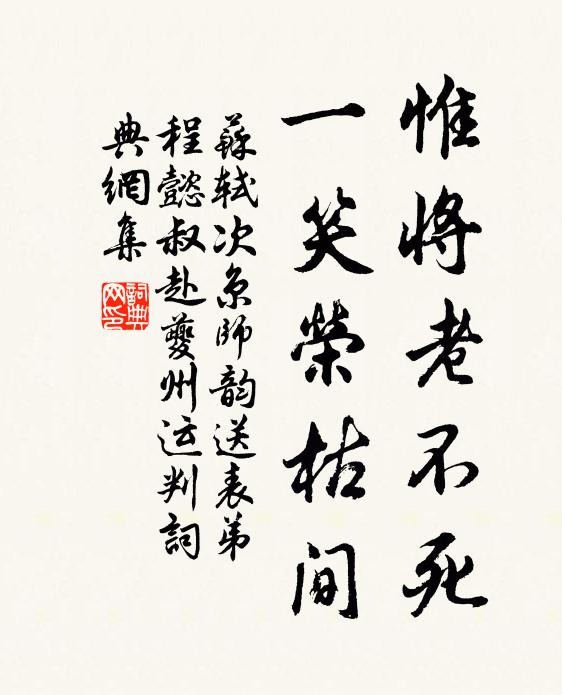 惟將老不死
一笑榮枯間
蘇軾次京師韵送表弟
程懿叔赴夔州运判詞
典網集
詞典网印